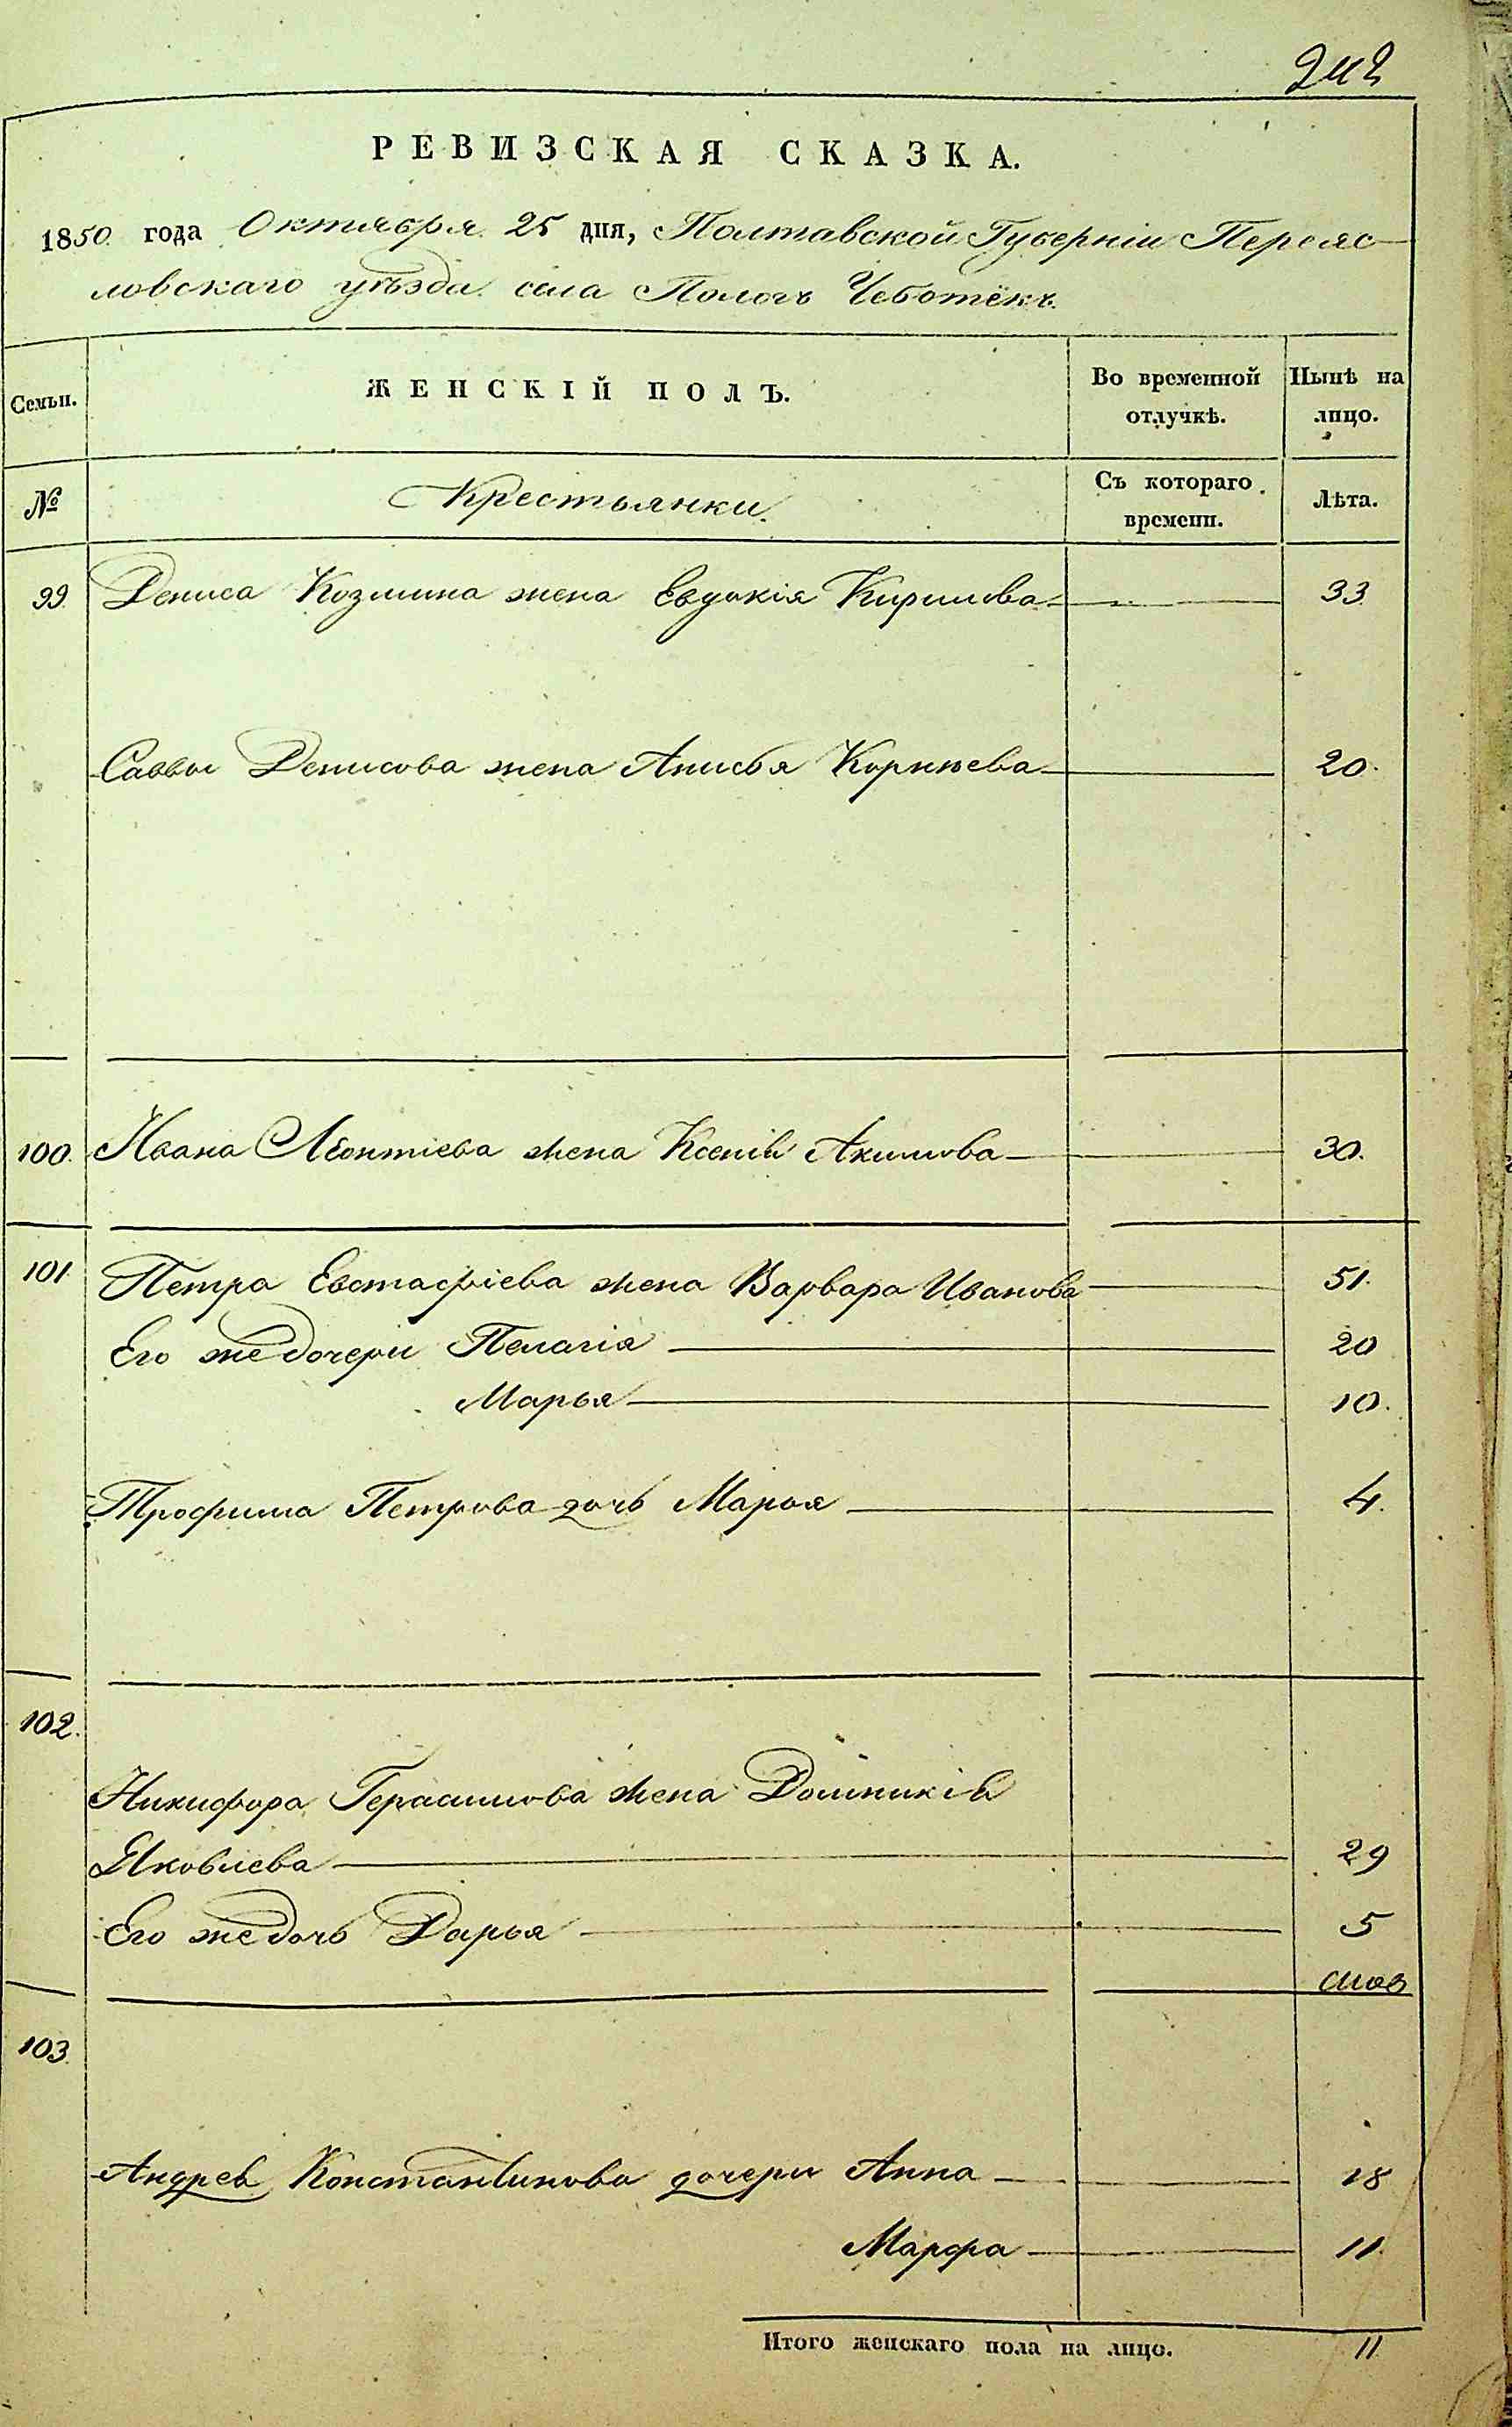 242
РЕВИЗСКАЯ СКАЗКА.
1850 года Октября 25 дня, Полтавской Губерніи Переяс-
ловскаго уѣзда села Пологъ Чеботёкъ.
Семьи. ЖЕНСКІЙ ПОЛЪ. Во временной отлучкѣ. Нынѣ на лицо.
№ Крестьянки. Съ котораго времени. Лѣта.
99. Дениса Козмина жена Евдокія Кирилова 33.
Саввы Денисова жена Анисья Корнѣева 20.
100. Ивана Леонтіева жена Ксенія Акимова 30.
101 Петра Евстафіева жена Варвара Иванова 51.
Его же дочери Пелагія 20
Марья 10.
Трофима Петрова дочь Марья 4.
102.
Никифора Герасимова жена Домникія
Яковлева 29
Его же дочь Дарья 5
103.
Андрея Константинова дочери Анна 18
Марфа 11.
Итого женскаго пола на лицо. 11.